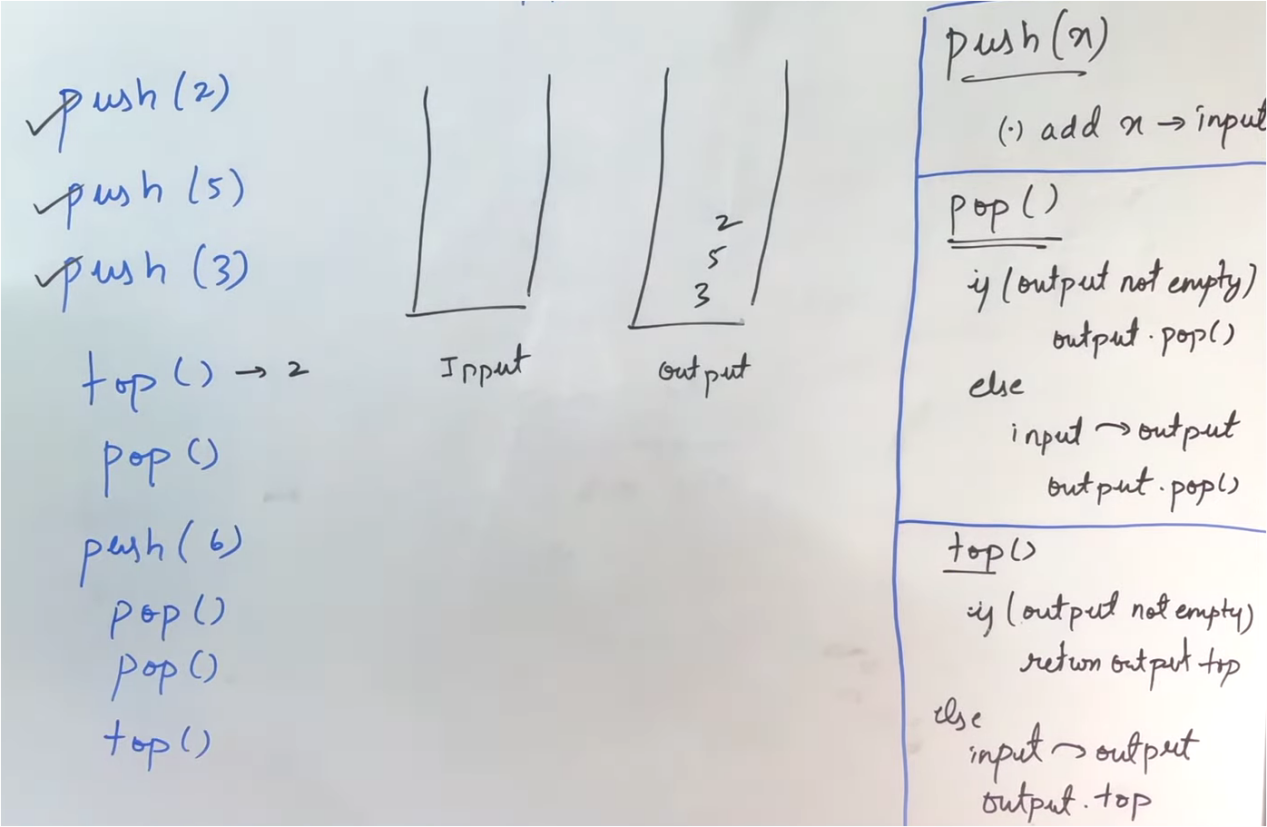 push (2)
push (5)
push (3)
top () → 2
pop ()
push (6)
pop ()
pop ()
top ()
2
5
3
Input
output
push(x)
(·) add x → input
pop ()
if (output not empty)
output.pop()
else
input → output
output.pop()
top()
if (output not empty)
return output top
else
input → output
output.top